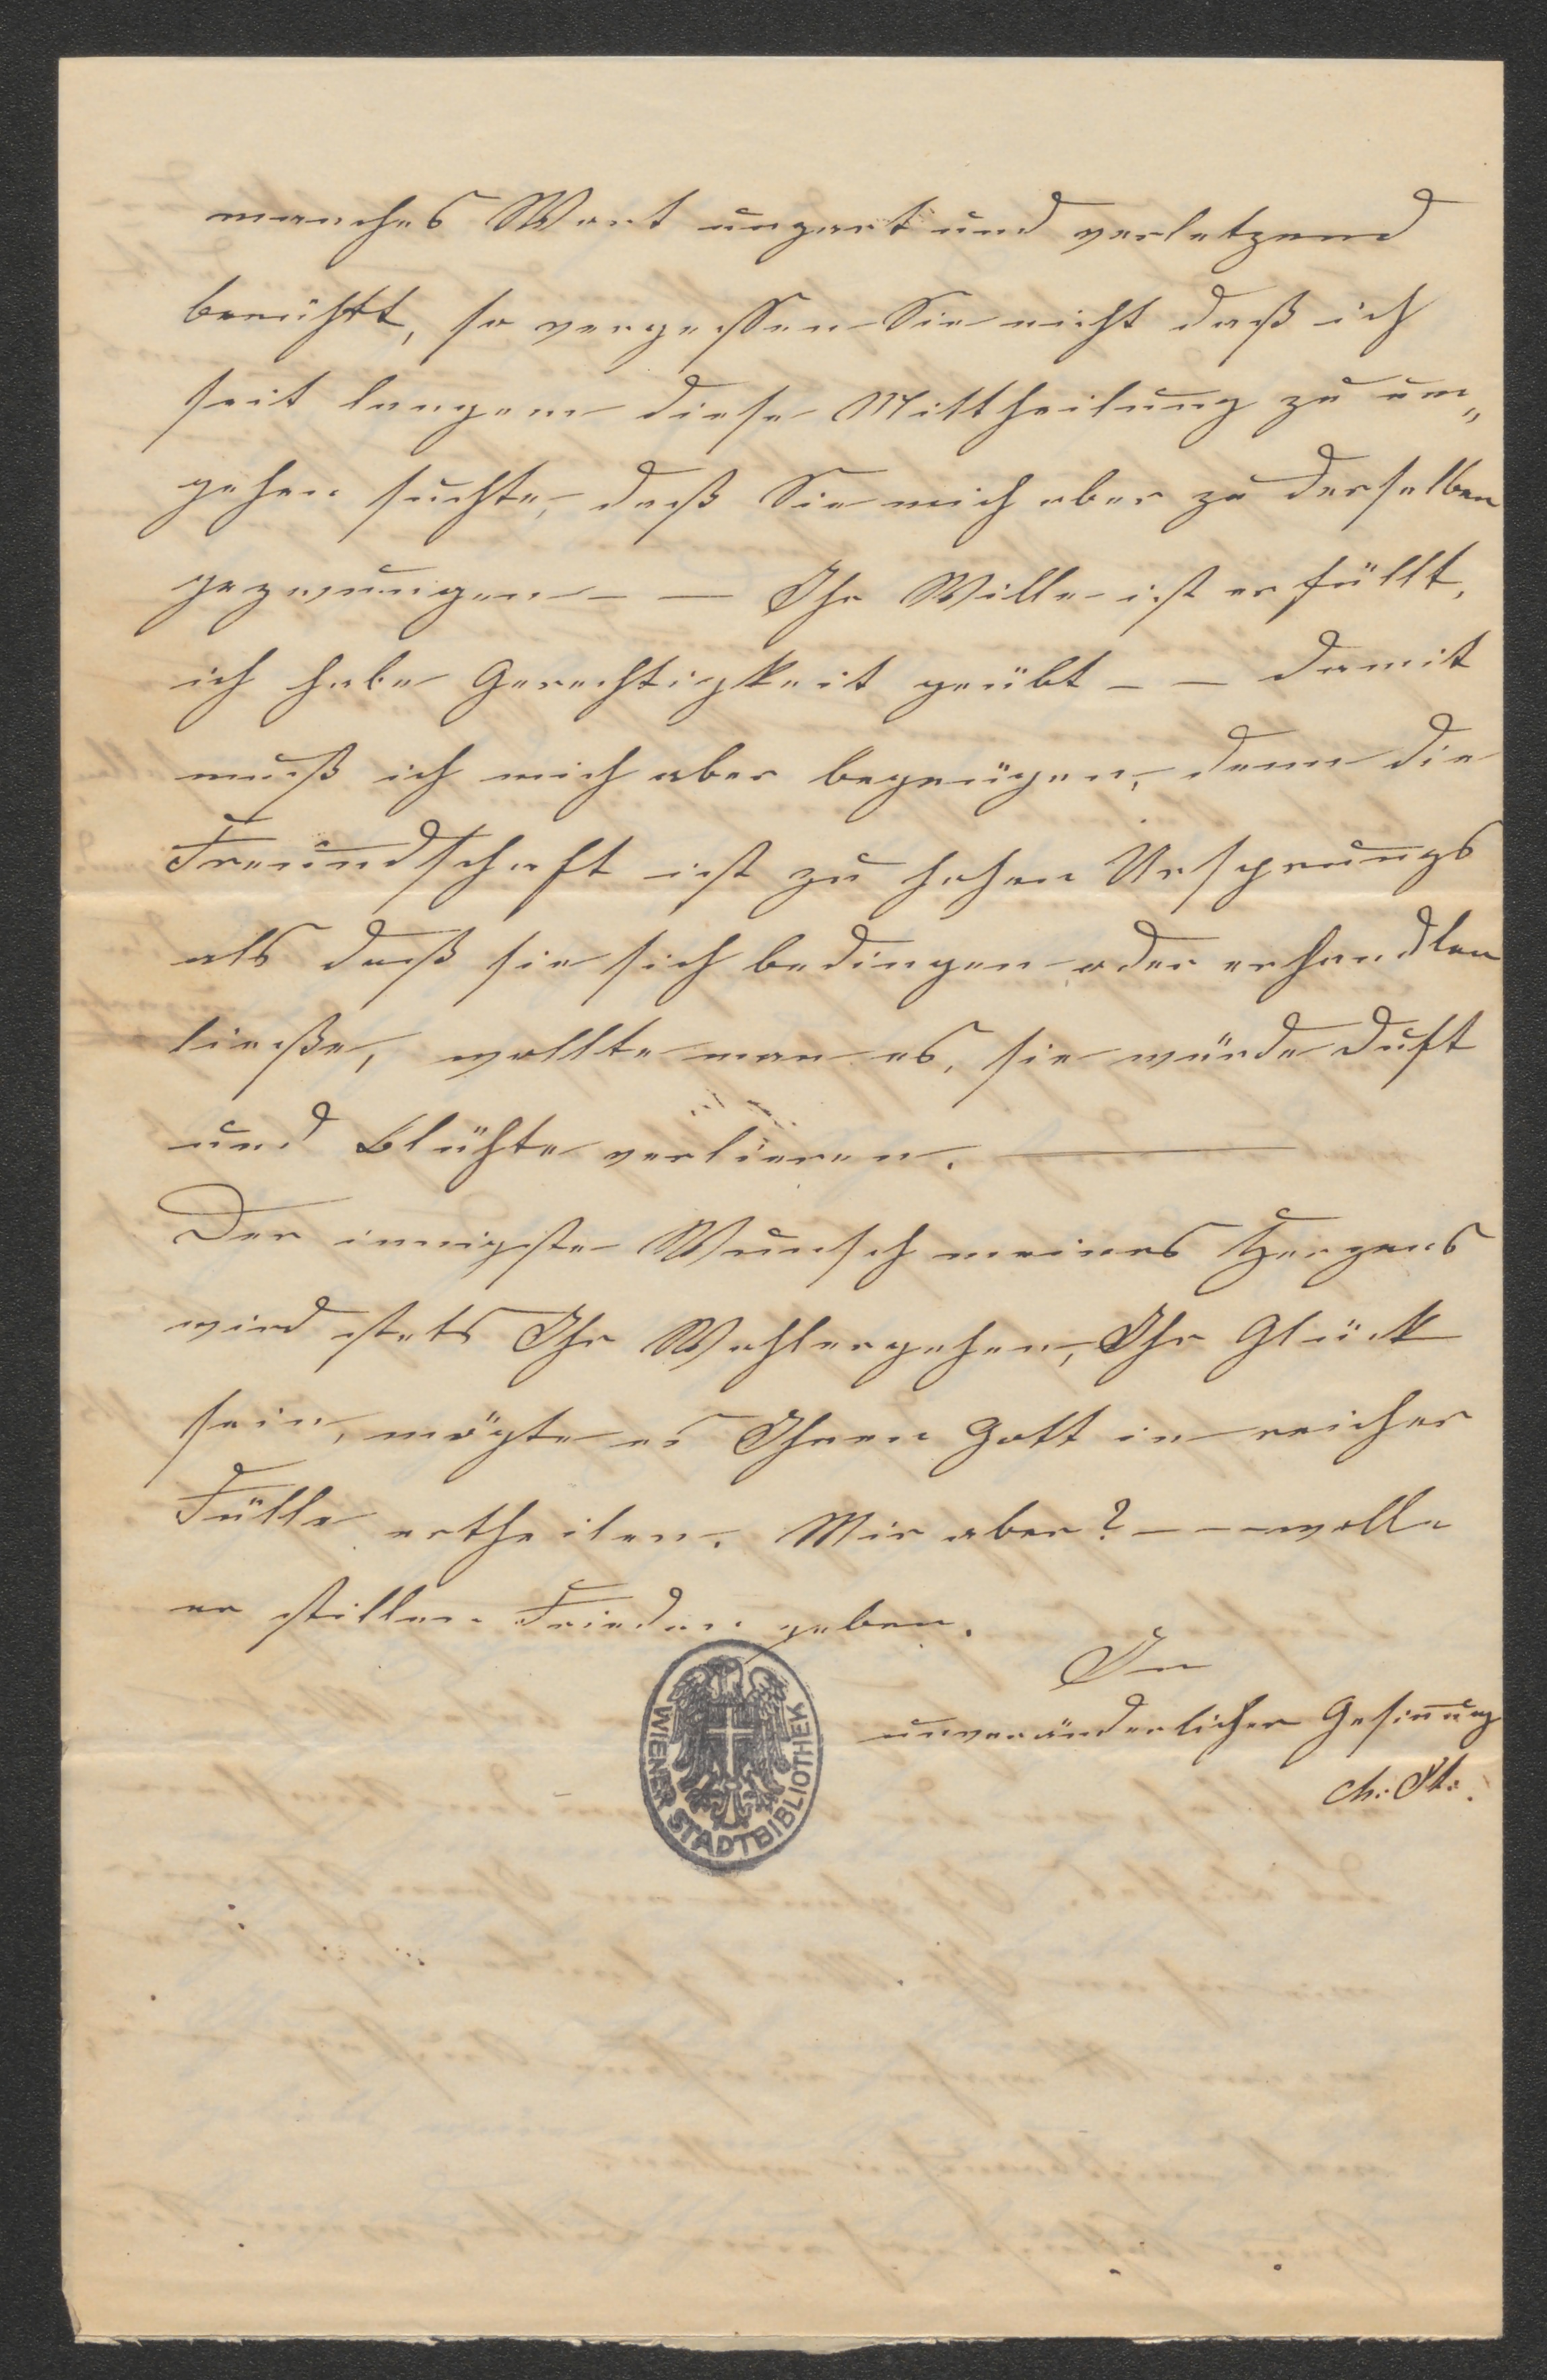 manches Wort unzart und verletzend
berühtt, so vergessen Sie nicht daß ich
seit langem diese Mittheilung zu um„
gehen suchte, daß Sie mich aber zu derselben
gezwungen — — Ihr Wille ist erfüllt,
ich habe Gerechtigkeit geübt — — damit
muß ich mich aber begnügen, denn die
Freundschaft ist zu hohen Ursprungs
als daß sie sich bedingen oder erhandlen
ließe, wollte man es, sie würde Duft
und Blühte verlieren. —
Der innigste Wunsch meines Herzens
wird stets Ihr Wohlergehen, Ihr Glück
sein, mögte es Ihnen Gott in reicher
Fülle ertheilen. Mir aber? — — — wolle
er stillen Frieden geben.
In
unveränderlicher Gesinnung
WIENER STADTBIBLIOTHEK